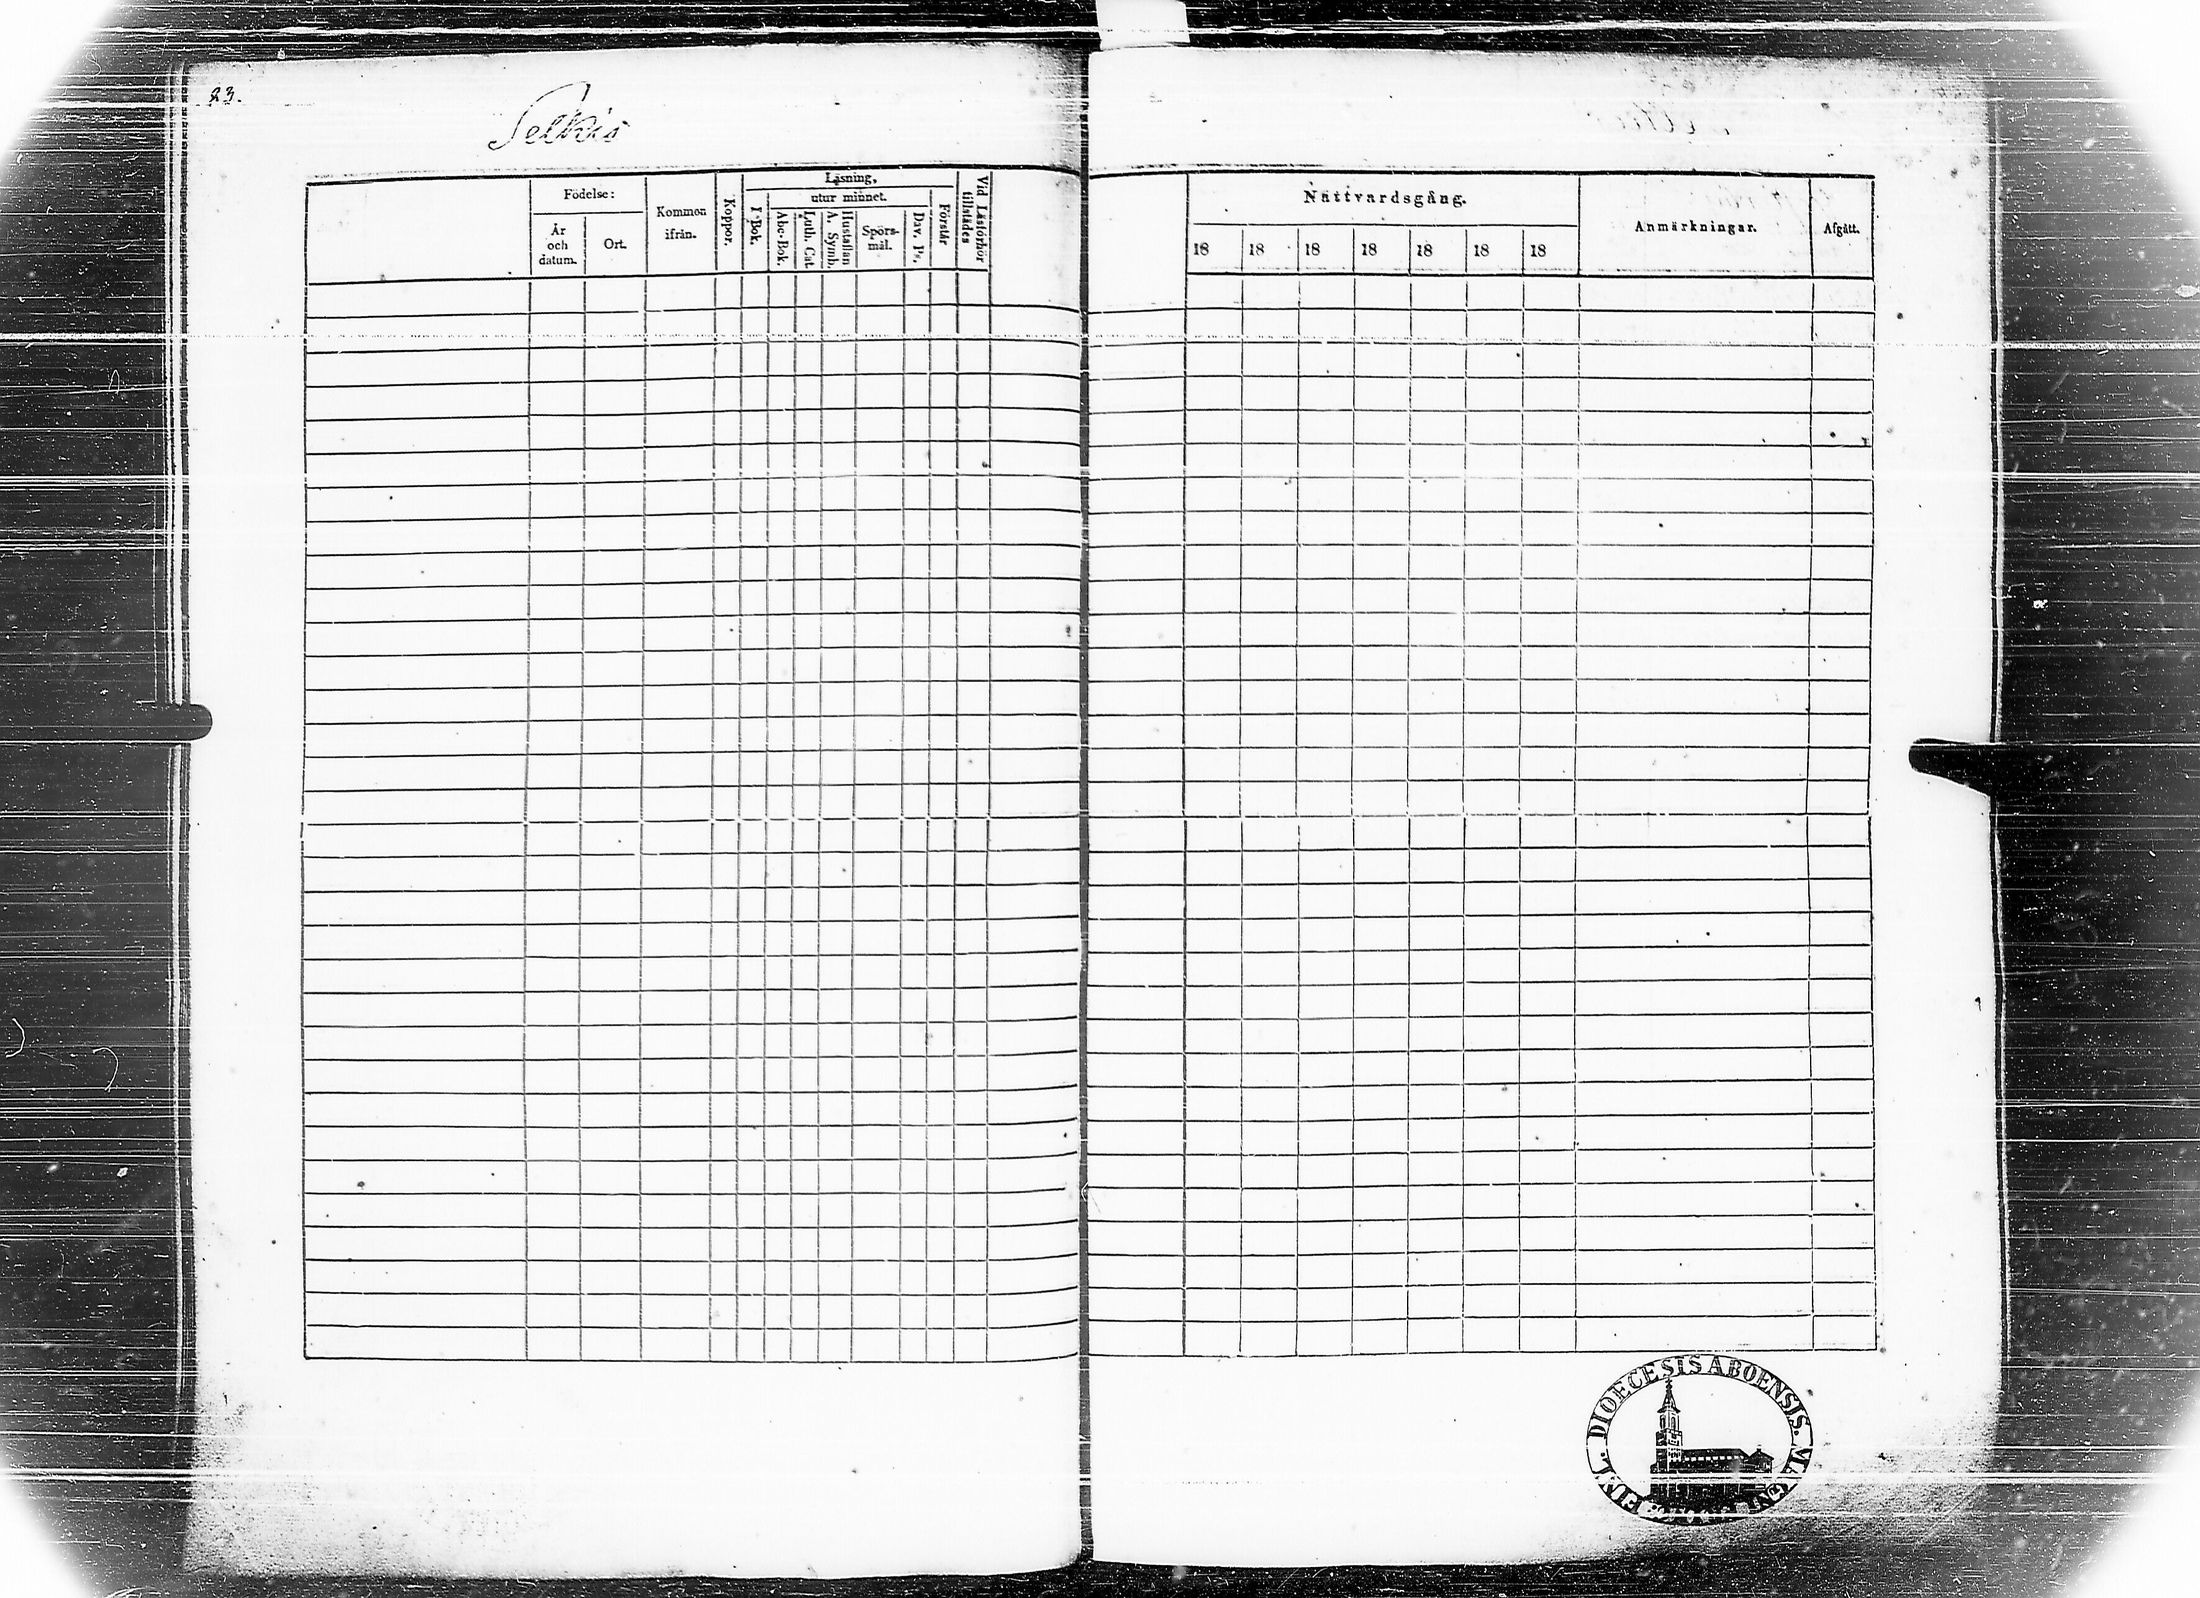 23.
Selkis
Födelse:
År
och
datum.
Ort.
Kommon
ifrån.
Koppor.
Läsning,
utur minnet.
I Bok.
Abc-Bok.
Luth. Cat.
A. Symb.
Hustaflan
Spörs-
mål.
Dav. Ps.
Förstår
Vid Läsförhör
tillstädes
Nattvardsgång.
18 18 18 18 18 18 18
Anmärkningar.
Afgått.
DIOECESIS ABOENSIS.